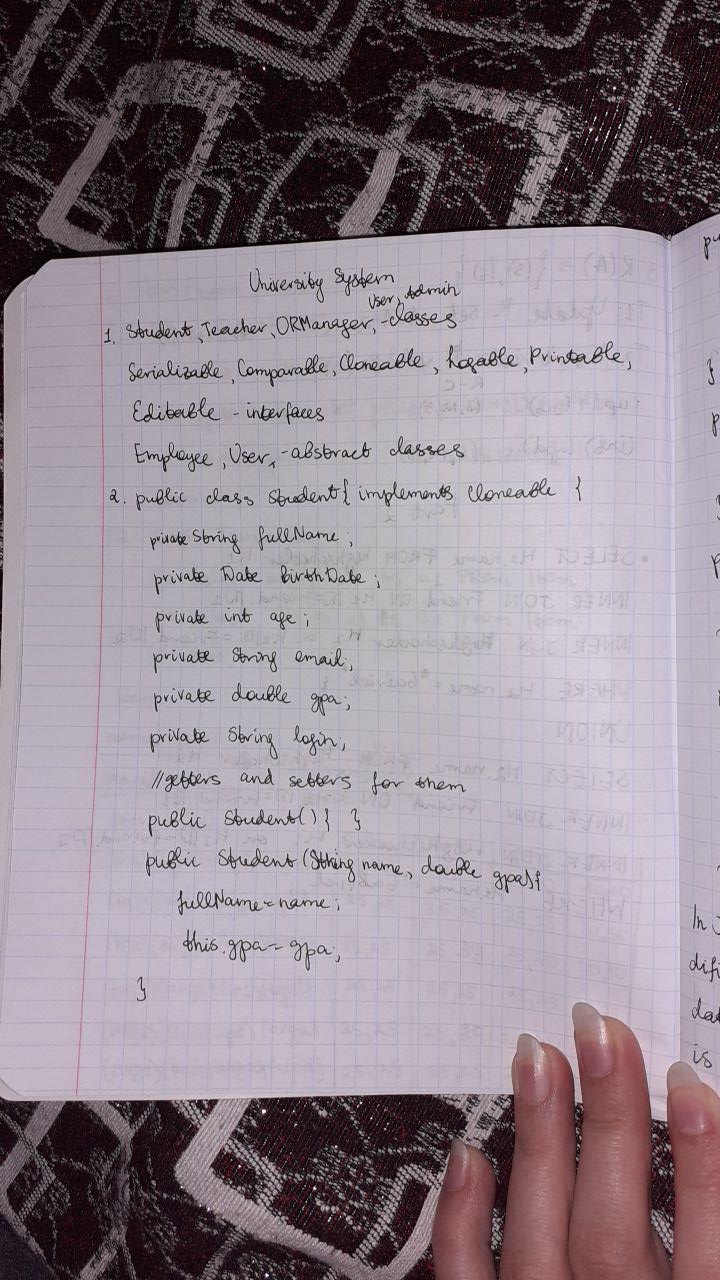 University System
User, Admin
1. Student, Teacher, ORManager, - classes
Serializable, Comparable, Cloneable, Logable, Printable,
Editable - interfaces
Employee, User, - abstract classes
2. public class Student{ implements Cloneable {
private String fullName;
private Date BirthDate;
private int age;
private String email;
private double gpa;
private String login;
//getters and setters for them
public Student(){ }
public Student (String name, double gpa){
fullName=name;
this.gpa=gpa;
}
In
is